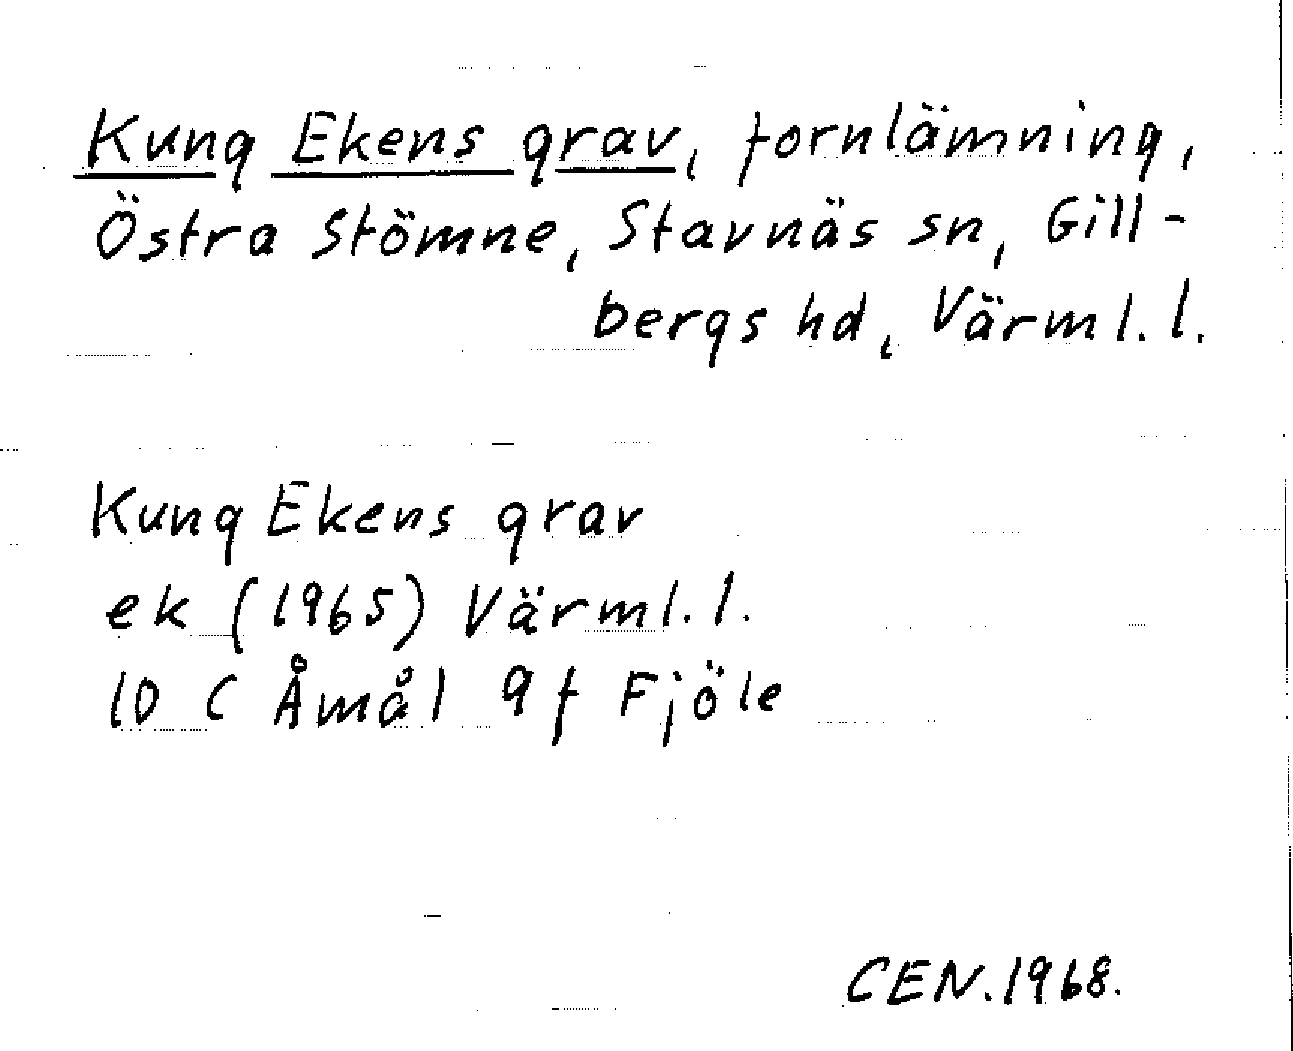 Kung Ekens grav, fornlämning,
Östra Stömne, Stavnäs sn, Gill-
bergs hd, Värml. l.
Kung Ekens grav
ek (1965) Värml. l.
10 C Åmål 9 f Fjöle
CEN. 1968.